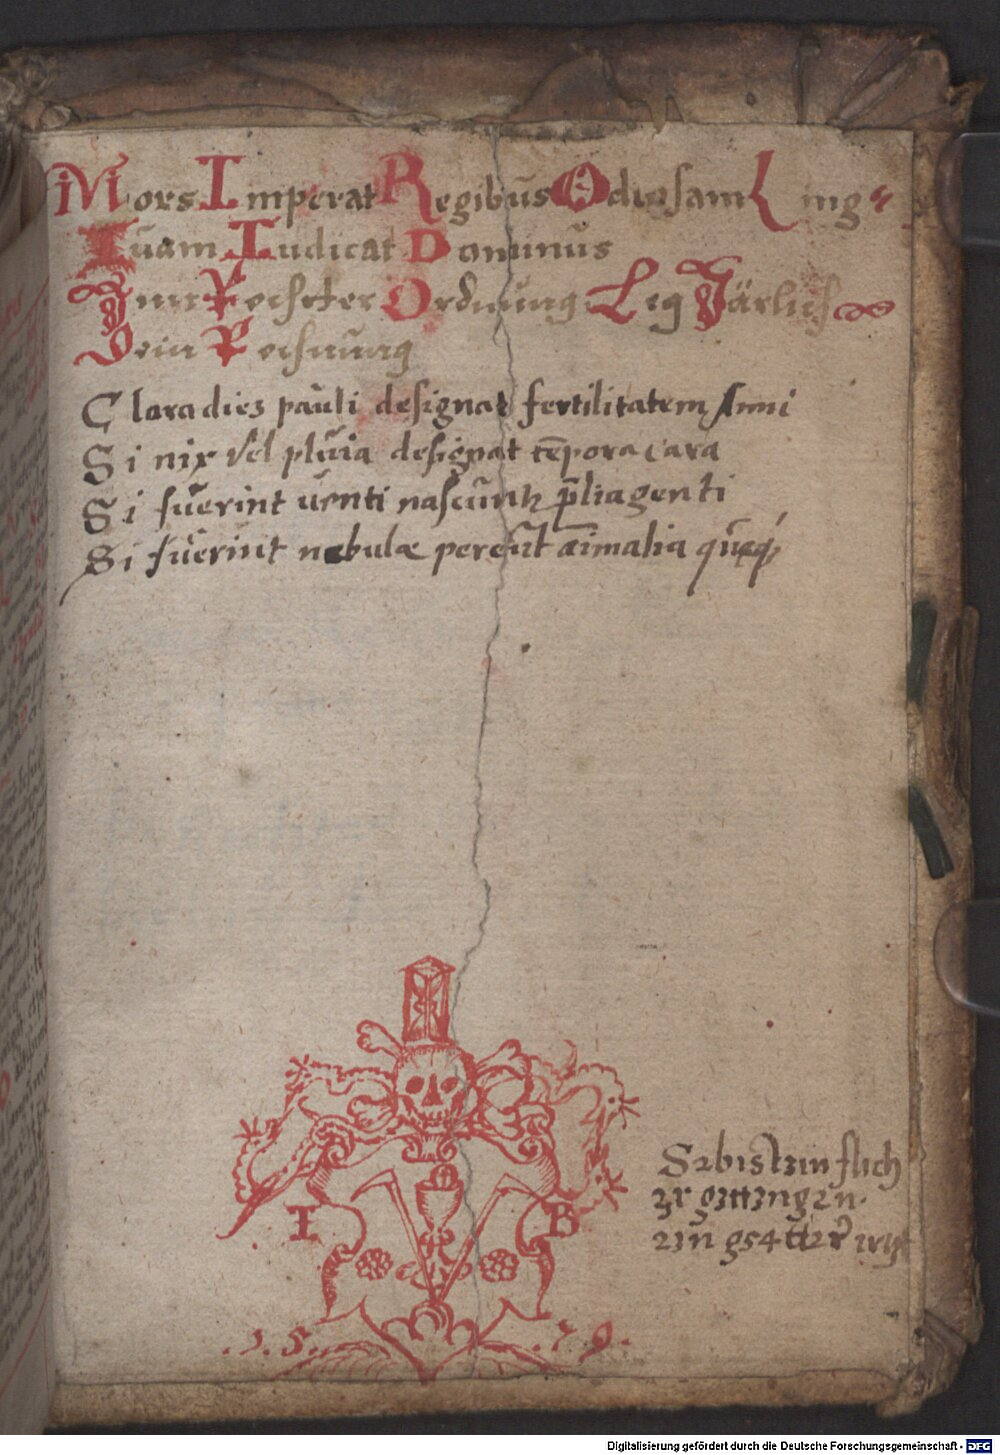 Mors Imperat Regibus Odiosam Ling=
Iuam Iudicat Dominus
Inn Rechter Ordnung Leg Järlich
Dein Rechnung
Clara dies paŭli designat fertilitatem Anni
Si nix vel plŭia designat tēpora cara
Si fŭerint uenti nascŭntꝛ p̄lia genti
Si fŭerint nebulæ pereŭt āimalia quæqꝫ
I B
.1.5. .79.
Digitalisierung gefördert durch die Deutsche Forschungsgemeinschaft - DFG